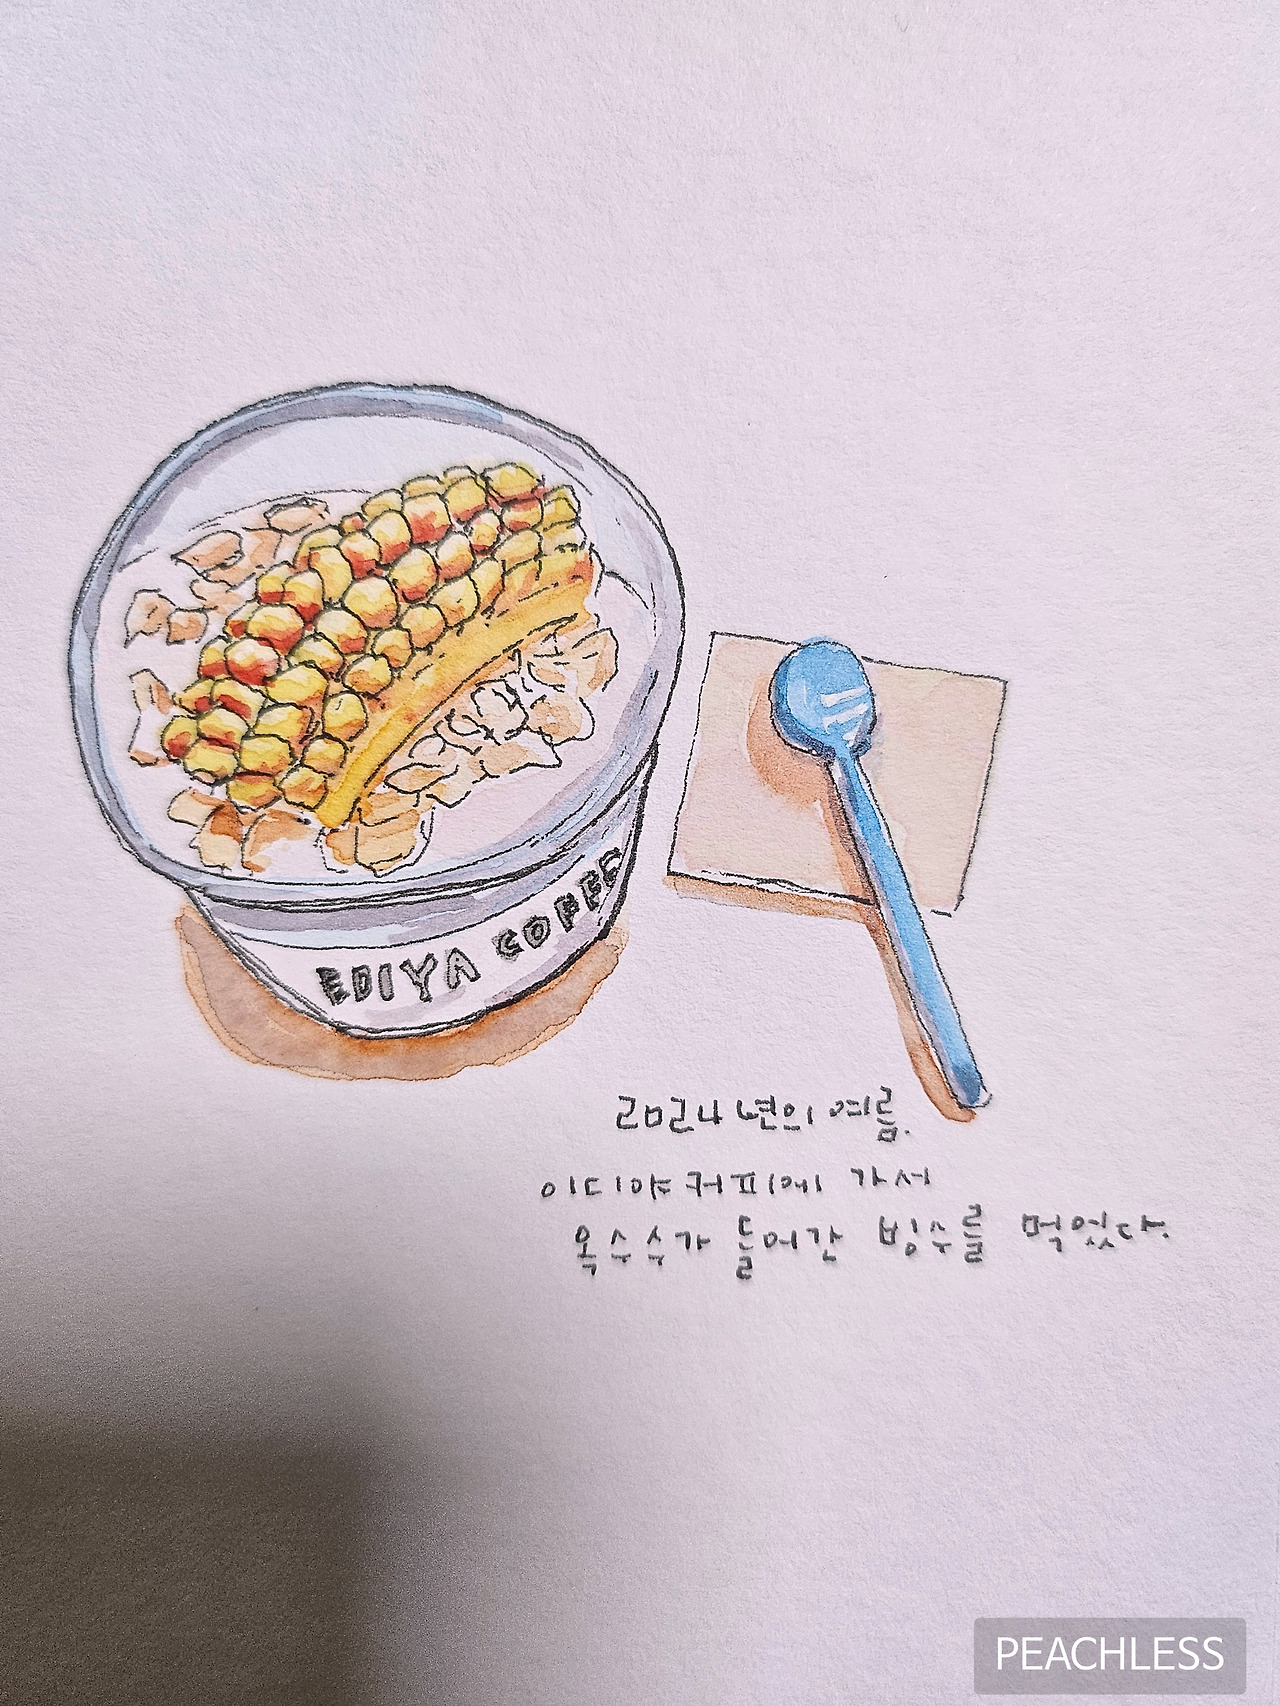 EDIYA COFFEE
2024년의 여름.
이디야커피에 가서
옥수수가 들어간 빙수를 먹었다.
PEACHLESS